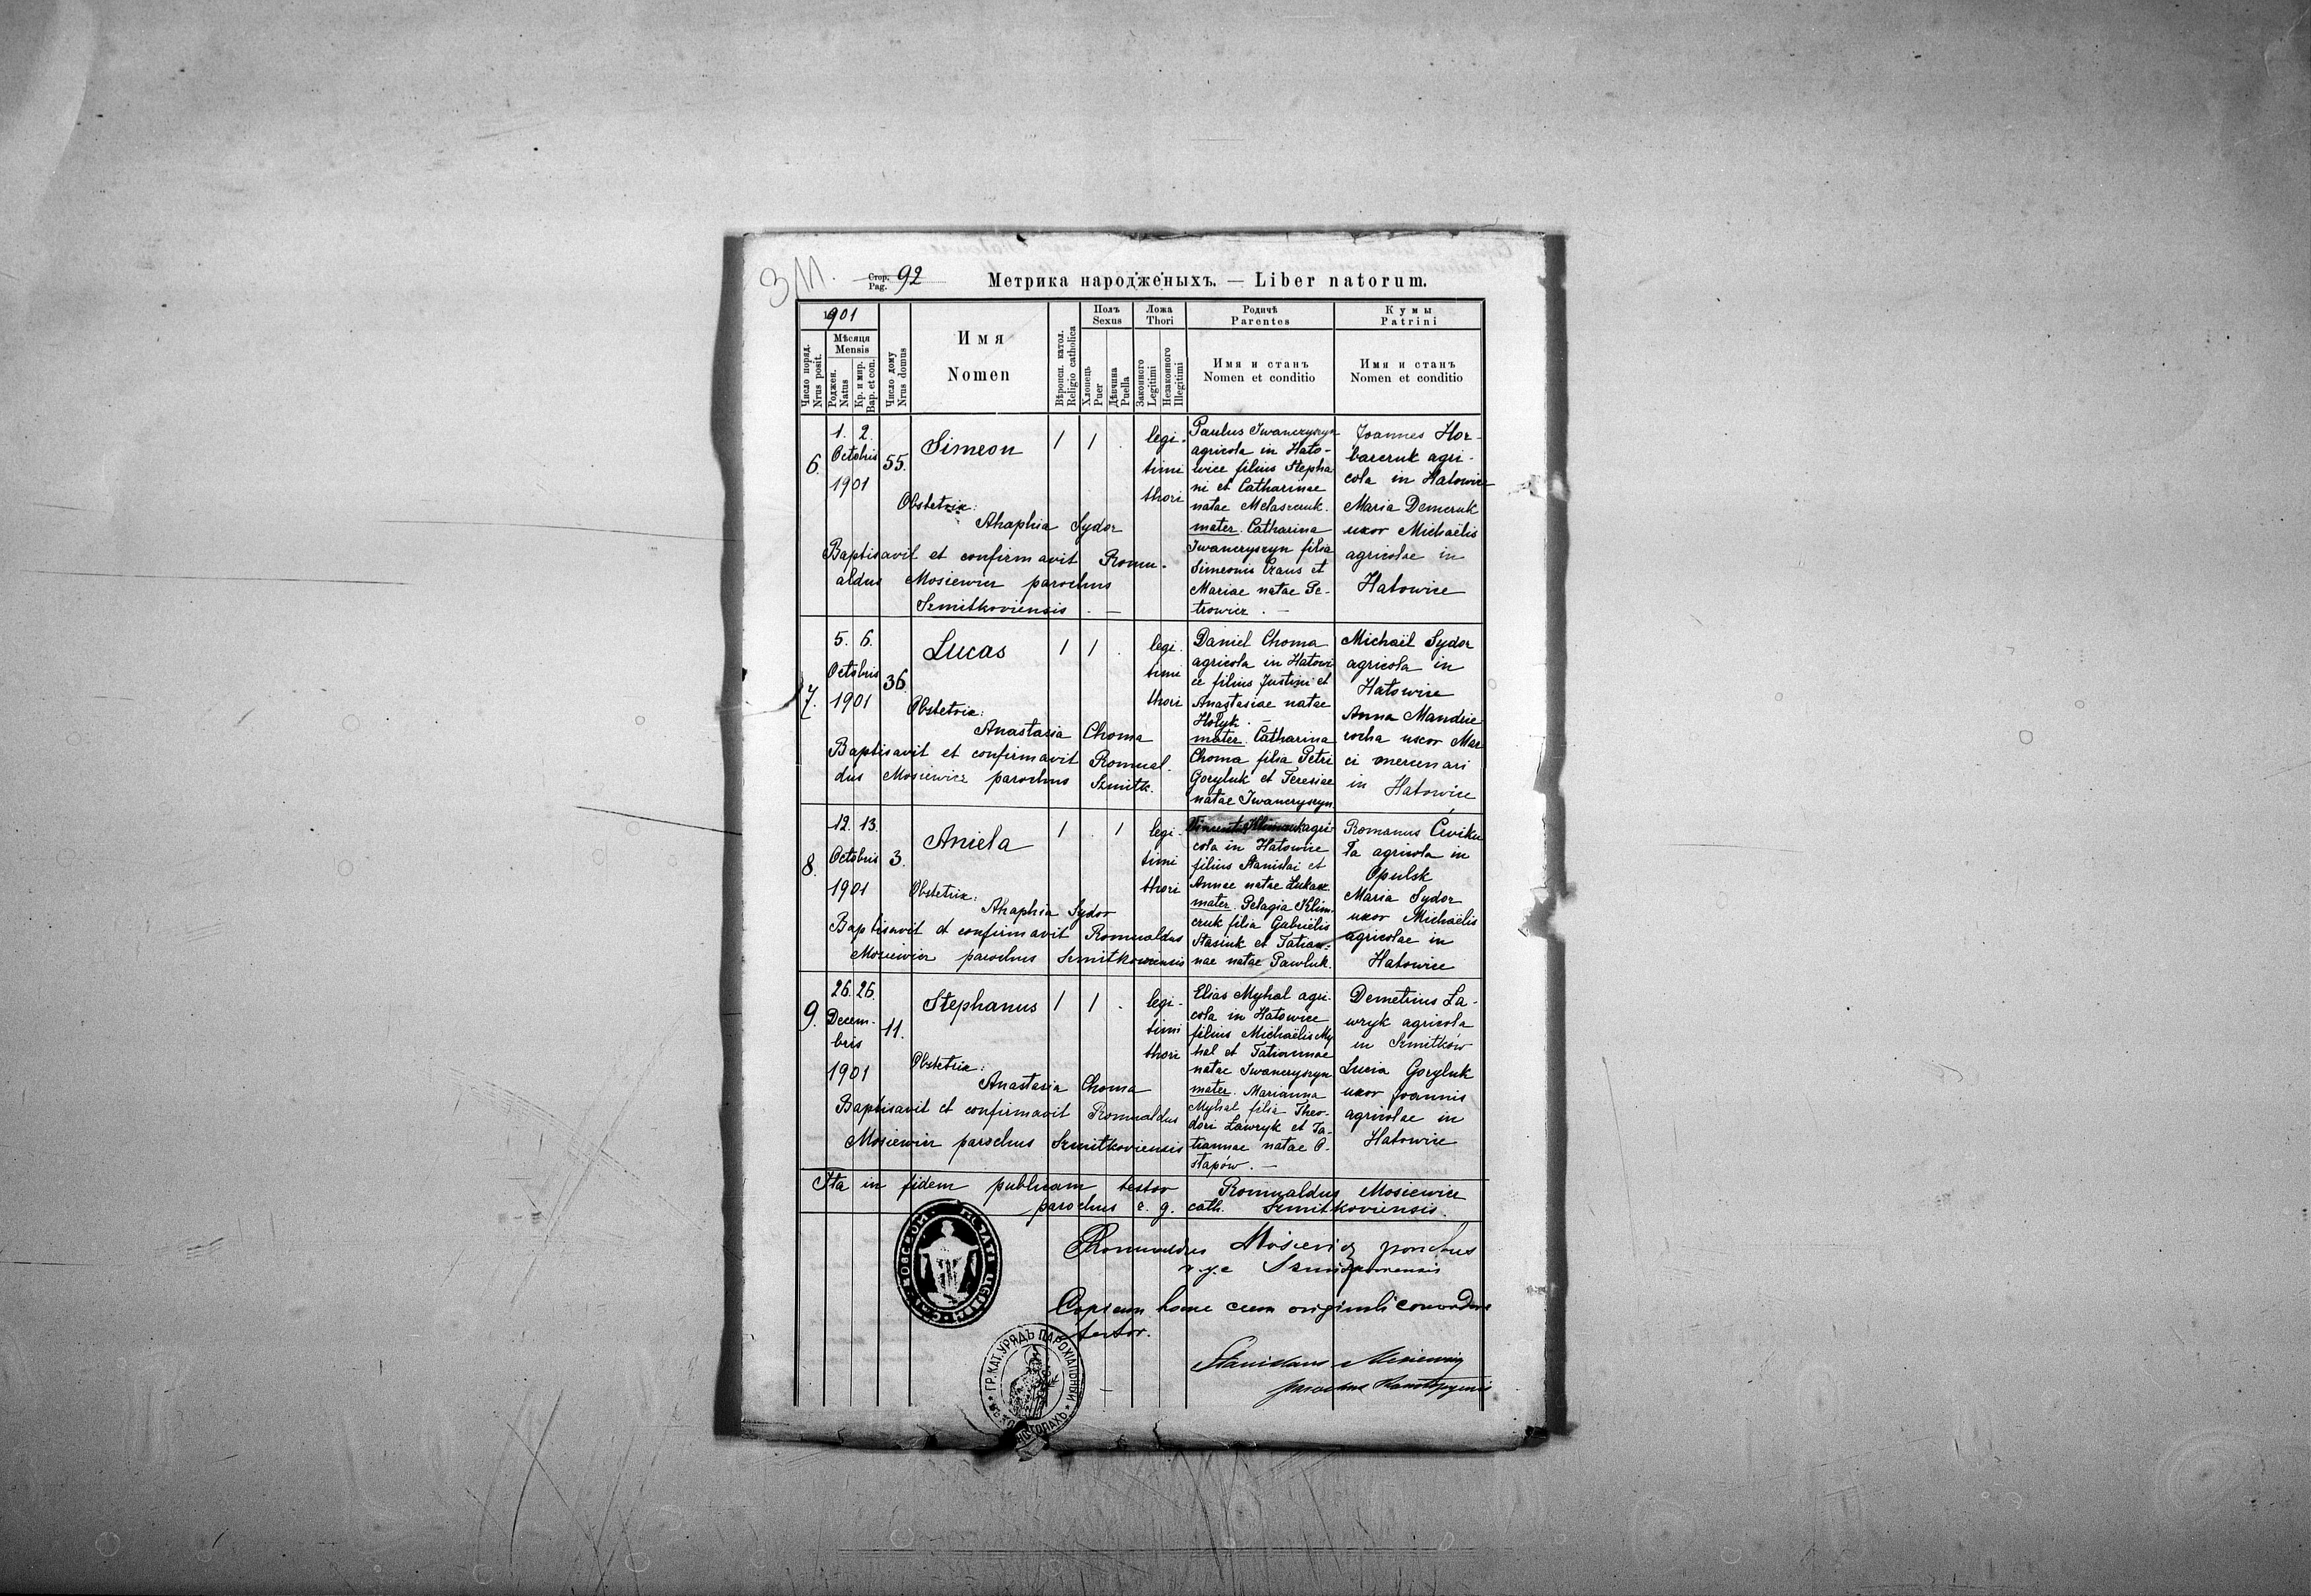 311.
Стор. Pag. 92
Метрика народженыхъ. — Liber natorum.
1901
Число поряд. Nrus posit.
Мѣсяця Mensis
Роджен. Natus
Кр. и мир. Bap. et con.
Число дому Nrus domus
Имя
Nomen
Вѣроисп. катол. Religio catholica
Полъ Sexus
Хлопець Puer
Дѣвчина Puella
Ложа Thori
Законного Legitimi
Незаконного Illegitimi
Родичѣ Parentes
Имя и станъ
Nomen et conditio
Кумы Patrini
Имя и станъ
Nomen et conditio
6.
1. 2.
Octobris
1901
55.
Simeon
1 1 .
legi-
timi
thori
Obstetrix:
Ahaphia Sydor
Baptisavit et confirmavit Romu-
aldus Mosiewicz parochus
Szmitkoviensis . —
Paulus Iwanczyszyn
agricola in Hato-
wice filius Stepha
ni et Catharinae
natae Melaszczuk.
mater. Catharina
Iwanczyszyn filia
Simeonis Czaus et
Mariae natae Pe-
trowicz . —
Joannes Hor-
barczuk agri-
cola in Hatowice
Maria Demczuk
uxor Michaëlis
agricolae in
Hatowice
7.
5. 6.
Octobris
1901
36.
Lucas
1 1 .
legi.
timi
thori
Obstetrix:
Anastasia Choma
Baptisavit et confirmavit Romual.
dus Mosiewicz parochus Szmitk.
Daniel Choma
agricola in Hatowi
ce filius Justini et
Anastasiae natae
Hołyk . —
mater. Catharina
Choma filia Petri
Goryluk et Teresiae
natae Iwanczyszyn.
Michaël Sydor
agricola in
Hatowice
Anna Mandzie
rocha uxor Mar
ci mercenari
in Hatowice
8.
12. 13.
Octobris
1901
3.
Aniela
1 . 1
legi-
timi
thori
Obstetrix:
Ahaphia Sydor
Baptisavit et confirmavit Romualdus
Mosiewicz parochus Szmitkowiensis
agri-
cola in Hatowice
filius Stanislai et
Annae natae Łukasz.
mater. Pelagia Klim-
czuk filia Gabriëlis
Stasiuk et Tatian-
nae natae Pawluk.
Romanus Cwiku
ła agricola in
Opulsk
Maria Sydor
uxor Michaëlis
agricolae in
Hatowice
9.
26. 26.
Decem-
bris
1901
11.
Stephanus
1 1 .
legi-
timi
thori
Obstetrix:
Anastasia Choma
Baptisavit et confirmavit Romualdus
Mosiewicz parochus Szmitkoviensis
Elias Myhal agri-
cola in Hatowice
filius Michaëlis My
hal et Tatiannae
natae Iwanczyszyn
mater. Marianna
Myhal filia Theo-
dori Ławryk et Ta-
tiannae natae O-
stapów . —
Demetrius Ła-
wryk agricola
in Szmitków
Lucia Goryluk
uxor Joannis
agricolae in
Hatowice
Ita in fidem publicam testor Romualdus Mosiewicz
parochus r. g. cath. Szmitkoviensis.
Romualdus Mosiewicz parochus
Copiam hanc cum originali concordare
testor.
Stanislaus Mosiewicz
parochus
ГР.КАТ.УРЯДЪ ПАРОХІАЛЬНЫЙ